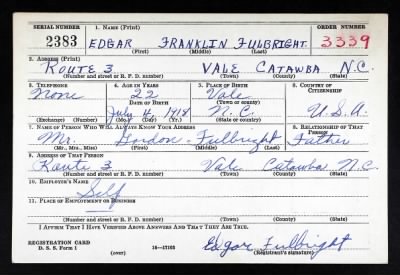 SERIAL NUMBER 1. NAME (Print) ORDER NUMBER
2383 EDGAR FRANKLIN FULBRIGHT 3339
(First) (Middle) (Last)
2. ADDRESS (Print)
ROUTE 3 VALE CATAWBA N.C.
(Number and street or R. F. D. number) (Town) (County) (State)
3. TELEPHONE 4. AGE IN YEARS 5. PLACE OF BIRTH 6. COUNTRY OF CITIZENSHIP
None 22 Vale
DATE OF BIRTH (Town or county)
July 4, 1918 N.C. U.S.A.
(Exchange) (Number) (Mo.) (Day) (Yr.) (State or country)
7. NAME OF PERSON WHO WILL ALWAYS KNOW YOUR ADDRESS 8. RELATIONSHIP OF THAT PERSON
Mr. Gordon Fulbright Father
(Mr., Mrs., Miss) (First) (Middle) (Last)
9. ADDRESS OF THAT PERSON
Route 3 Vale Catawba N.C.
(Number and street or R. F. D. number) (Town) (County) (State)
10. EMPLOYER'S NAME
Self
11. PLACE OF EMPLOYMENT OR BUSINESS
(Number and street or R. F. D. number) (Town) (County) (State)
I AFFIRM THAT I HAVE VERIFIED ABOVE ANSWERS AND THAT THEY ARE TRUE.
REGISTRATION CARD
D. S. S. Form 1 (over) 16—17105 Edgar Fulbright
(Registrant's signature)